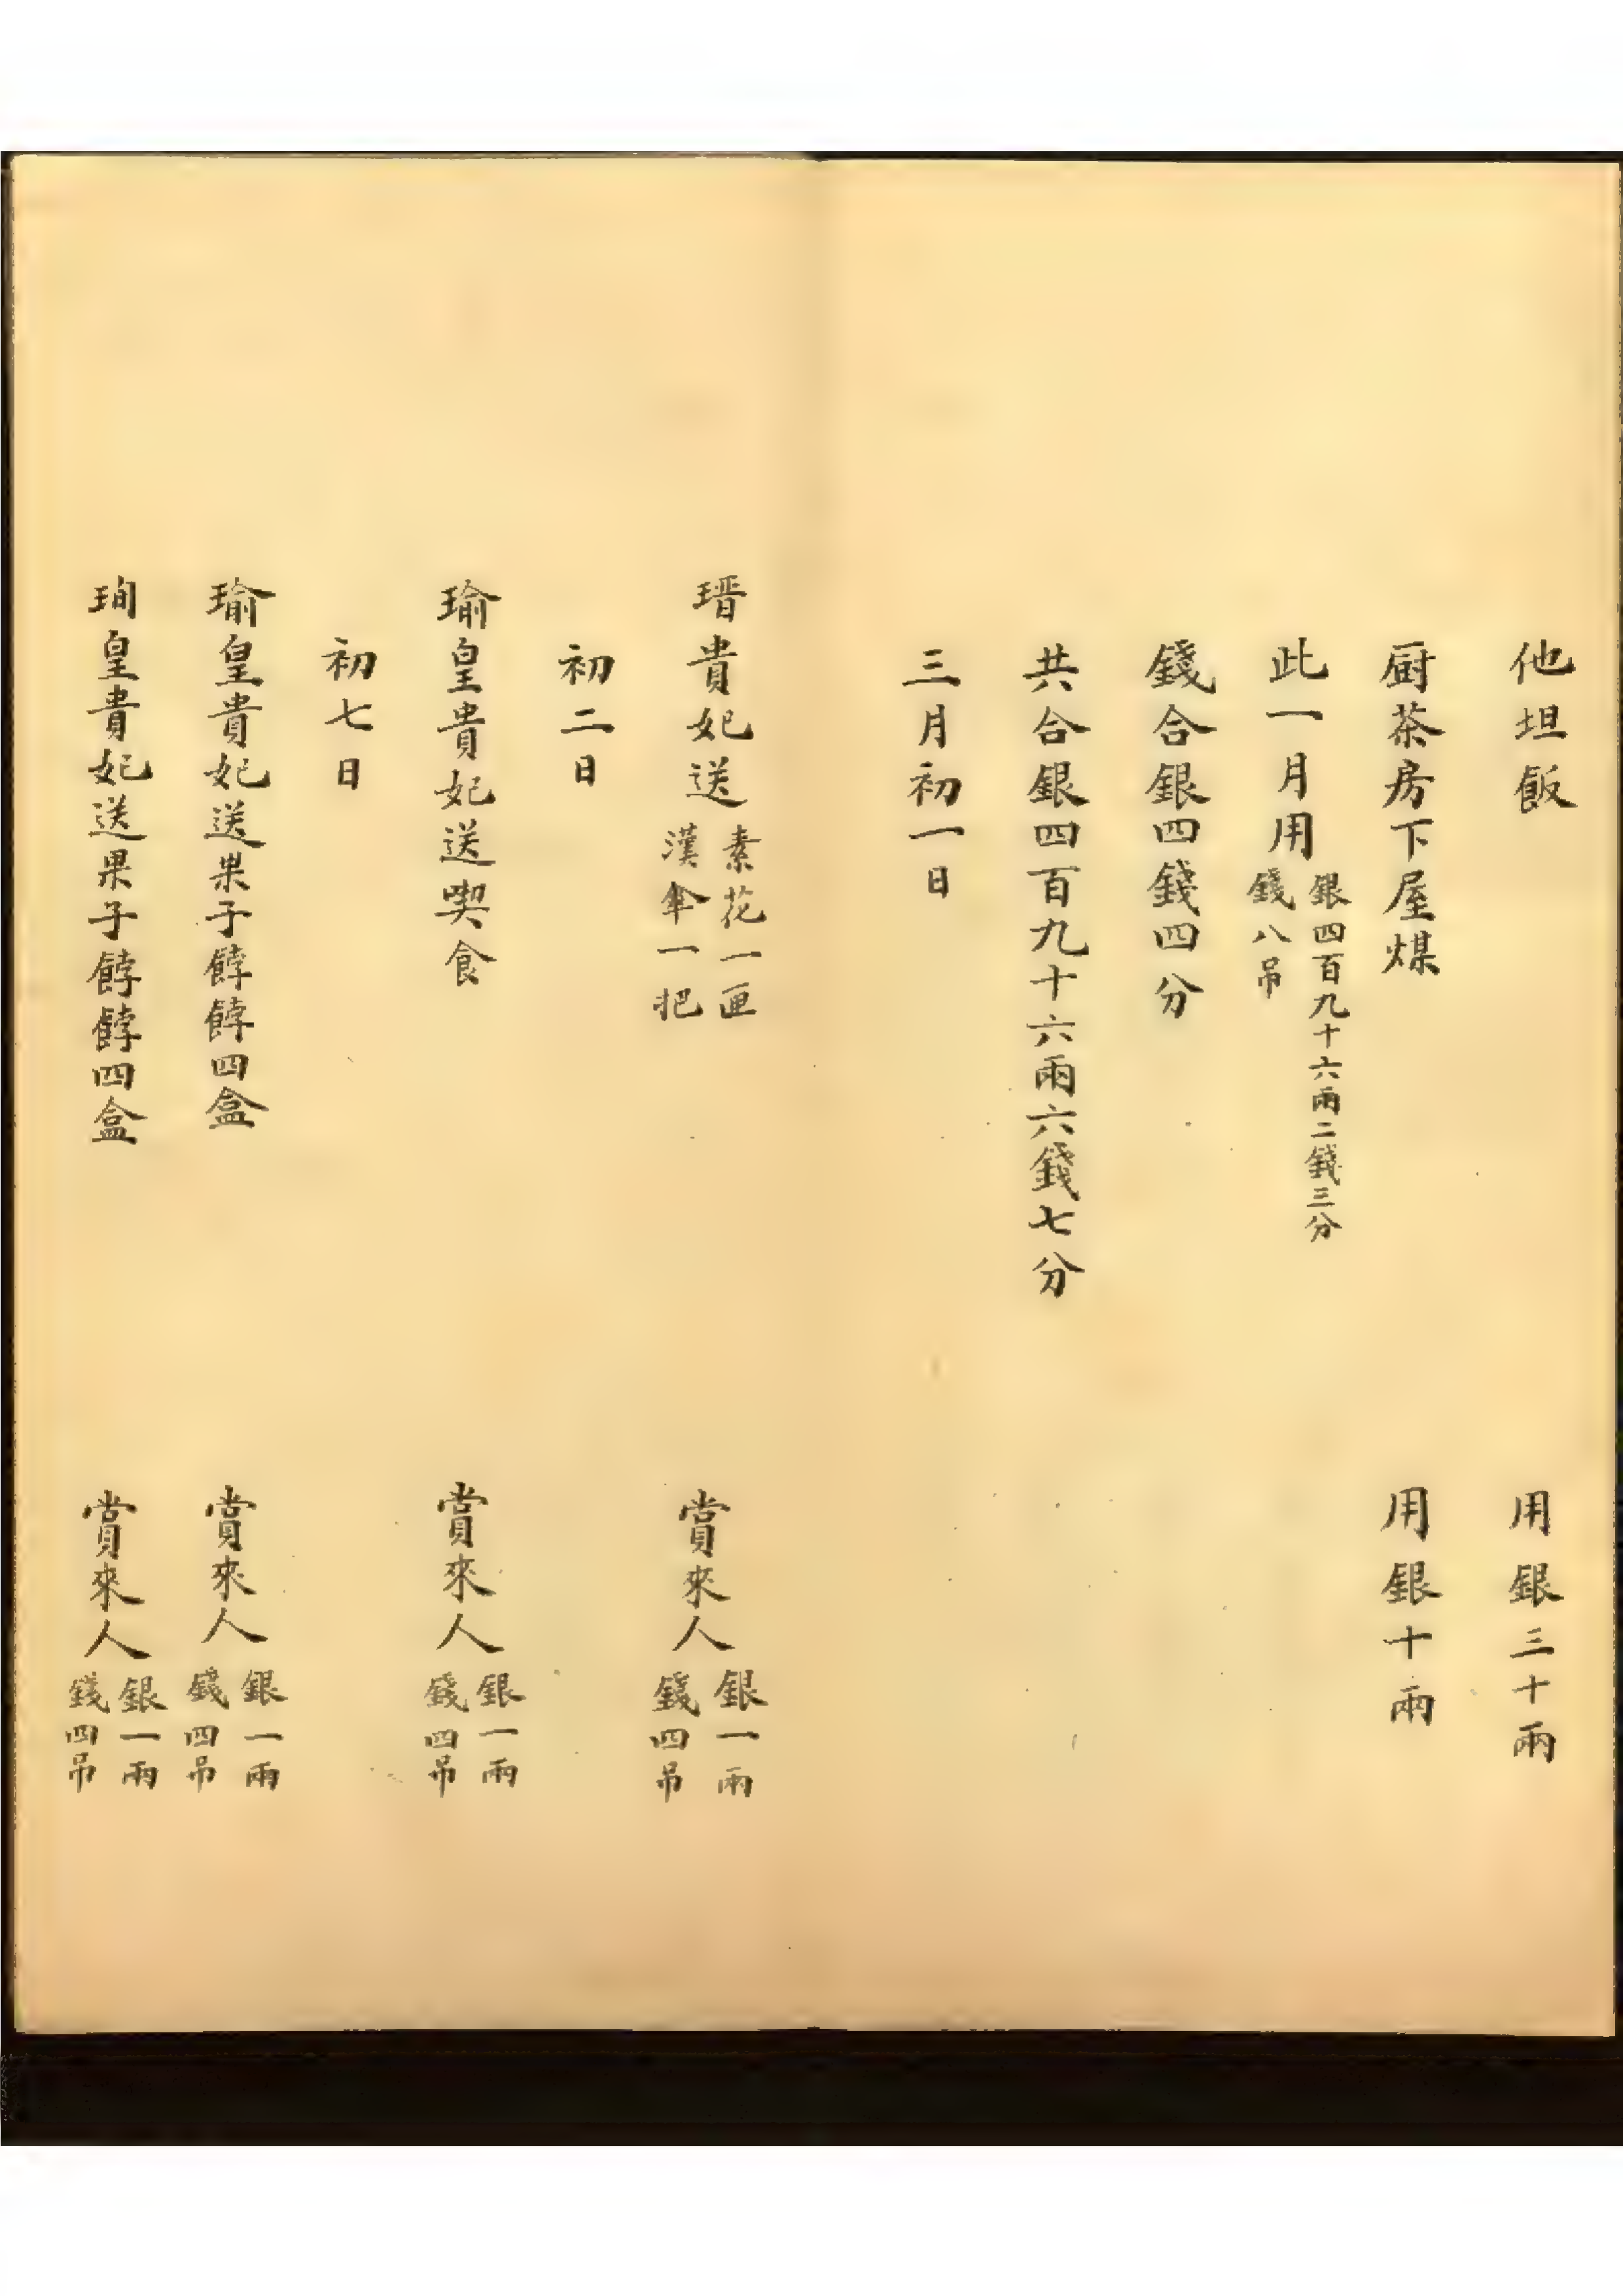 他坦飯 用銀三十兩
厨茶房下屋煤 用銀十兩
此一月用 銀四百九十六兩二錢三分 錢八吊
錢合銀四錢四分
共合銀四百九十六兩六錢七分
三月初一日
瑨貴妃送 素花一匣 漢傘一把 賞來人 銀一兩 錢四吊
初二日
瑜皇貴妃送喫食 賞來人 銀一兩 錢四吊
初七日
瑜皇貴妃送果子餑餑四盒 賞來人 銀一兩 錢四吊
珣皇貴妃送果子餑餑四盒 賞來人 銀一兩 錢四吊